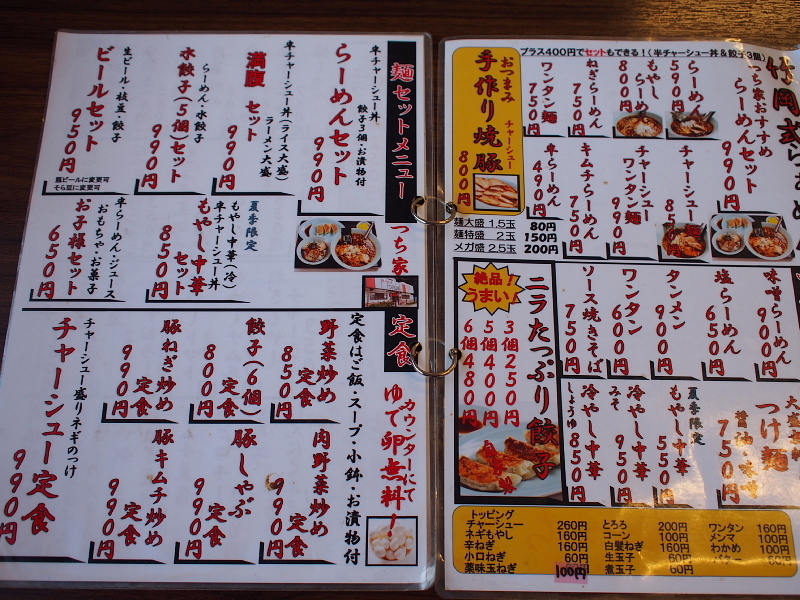 麺セットメニュー
半チャーシュー丼
餃子3個・お漬物付
らーめんセット
990円
半チャーシュー丼(ライス大盛)
ラーメン大盛
満腹セット
990円
らーめん・水餃子
水餃子(5個)セット
990円
生ビール・枝豆・餃子
ビールセット
950円
豚ビールに変更可
そら豆に変更可
夏季限定
もやし中華(冷)
半チャーシュー丼
もやし中華
セット
850円
半らーめん・ジュース
おもちゃ・お菓子
お子様セット
650円
つち家
定食
定食はご飯・スープ・小鉢・お漬物付
カウンターにて
ゆで卵無料!
野菜炒め
定食
850円
餃子(6個)
定食
800円
豚ねぎ炒め
定食
990円
チャーシュー盛りネギのっけ
チャーシュー定食
990円
肉野菜炒め
定食
990円
豚しゃぶ
定食
990円
豚キムチ炒め
定食
990円
プラス400円でセットもできる!(半チャーシュー丼&餃子3個)
竹岡式らーめん
つち家おすすめ
らーめんセット
990円
らーめん
590円
もやし
らーめん
800円
ねぎらーめん
750円
ワンタン麺
750円
おつまみ
チャーシュー
手作り焼豚
800円
チャーシュー
らーめん
850円
チャーシュー
ワンタン麺
990円
キムチらーめん
750円
半らーめん
490円
麺大盛 1.5玉 80円
麺特盛 2玉 150円
メガ盛 2.5玉 200円
味噌らーめん
900円
塩らーめん
650円
タンメン
900円
ワンタン
600円
ソース焼きそば
750円
絶品!
うまい!
ニラたっぷり餃子
3個250円
5個400円
6個480円
つけ麺
醤油・味噌
750円
夏季限定
もやし中華
550円
冷やし中華
みそ
950円
冷やし中華
しょうゆ850円
トッピング
チャーシュー 260円
ネギもやし 160円
辛ねぎ 160円
小口ねぎ 60円
薬味玉ねぎ 100円
とろろ 200円
コーン 100円
白髪ねぎ 160円
生玉子 60円
煮玉子 60円
ワンタン 160円
メンマ 100円
わかめ 100円
バター 60円